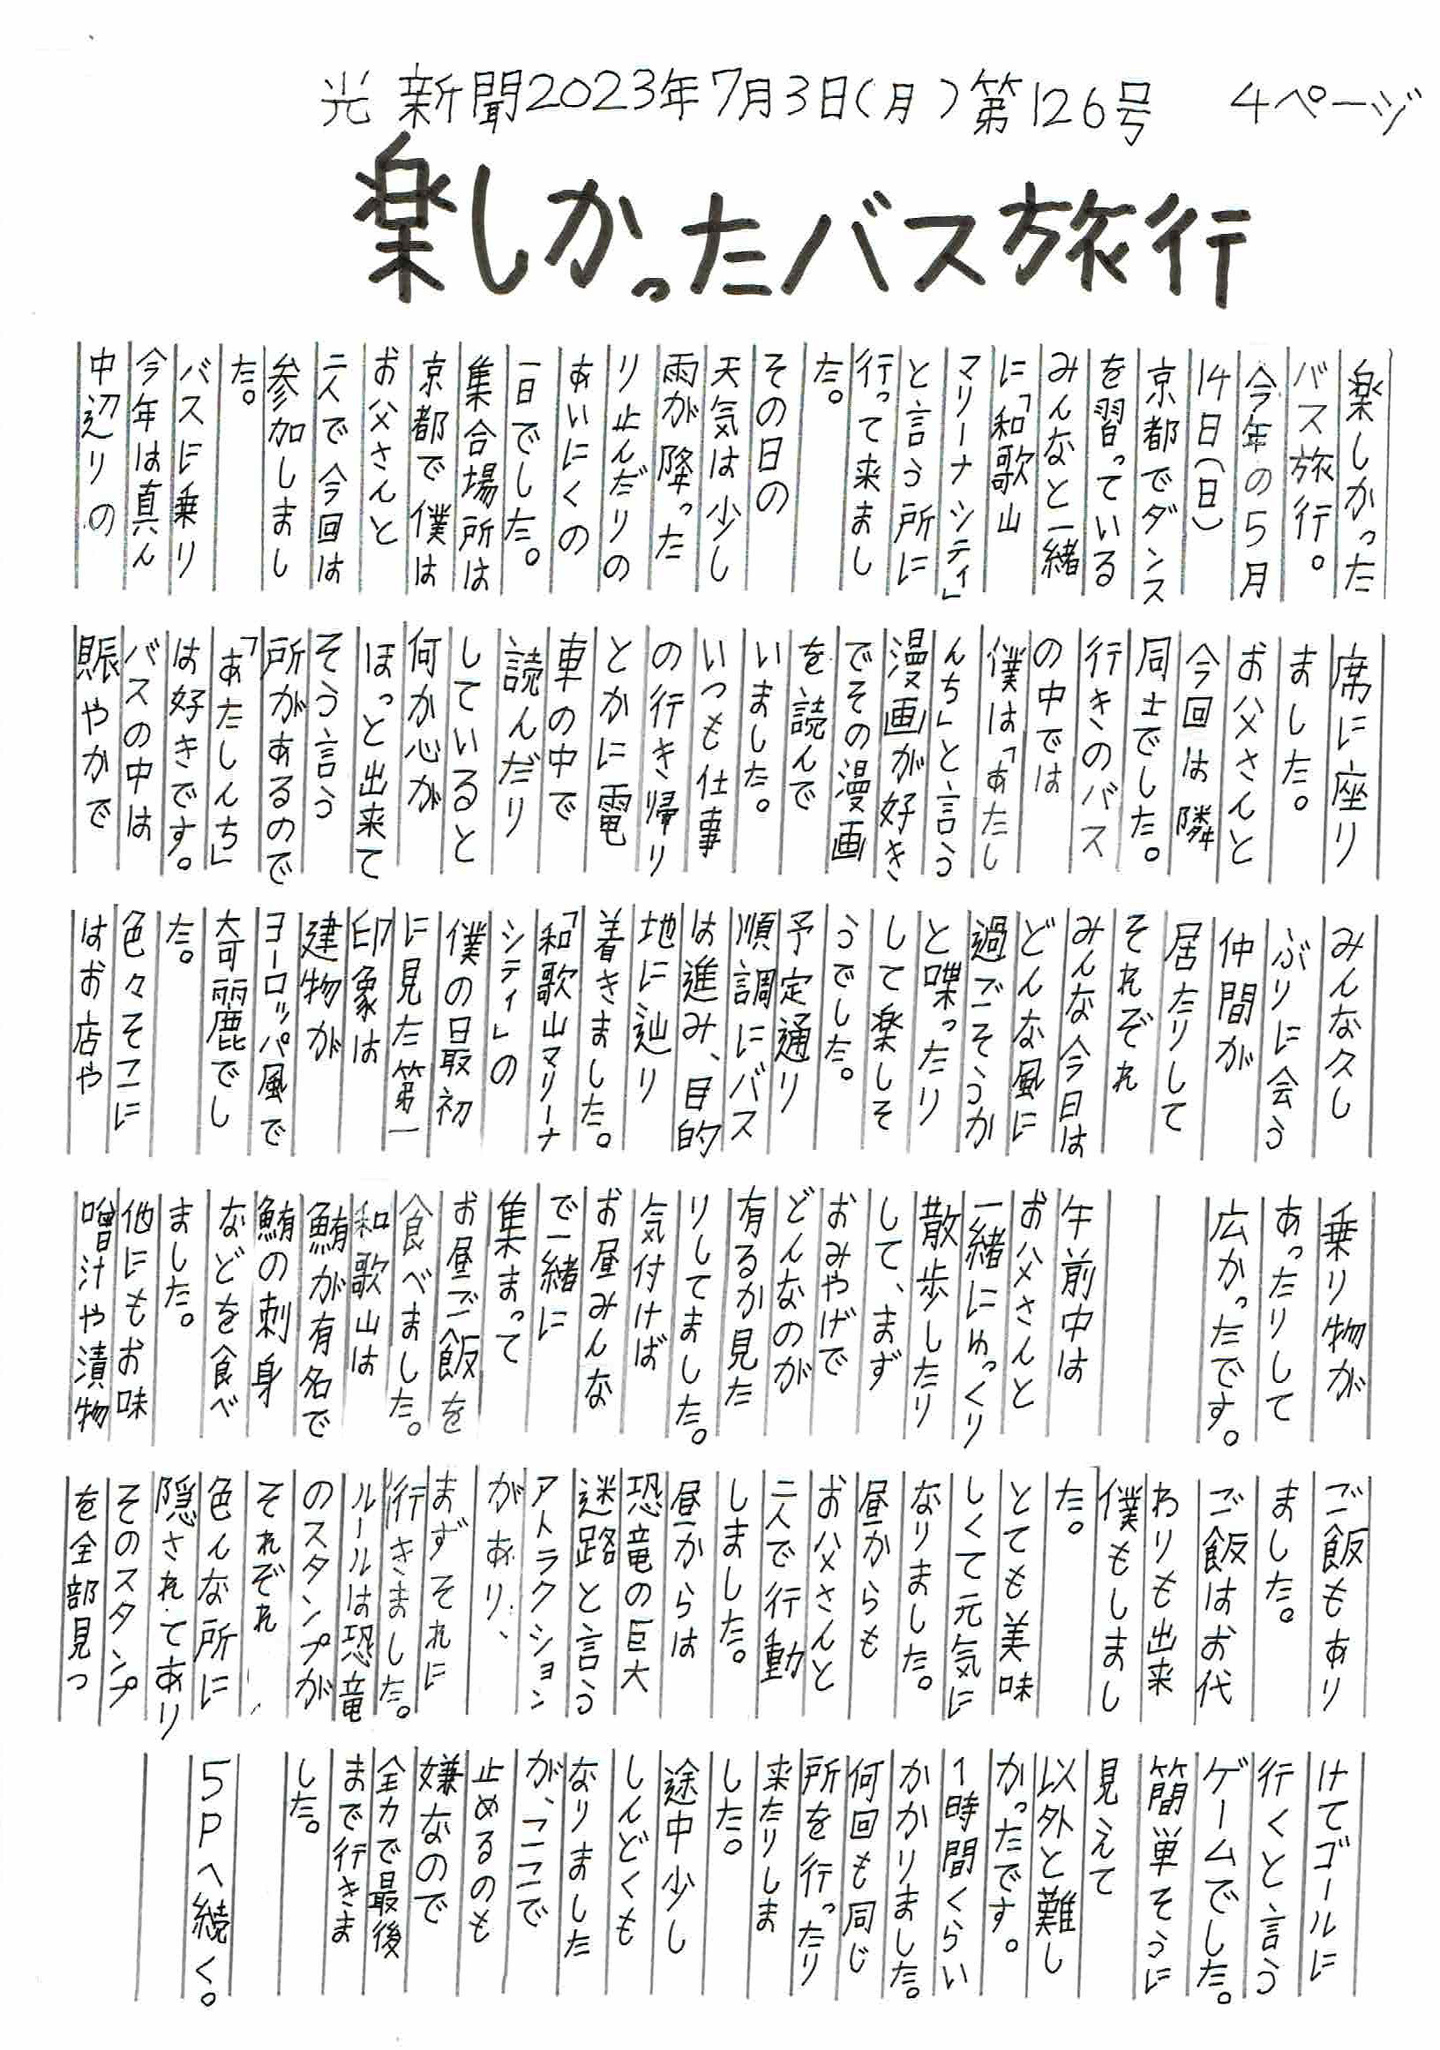 光新聞2023年7月3日(月)第126号 4ページ
楽しかったバス旅行
楽しかった
バス旅行。
今年の5月
14日(日)
京都でダンス
を習っている
みんなと一緒
に「和歌山
マリーナシティ」
と言う所に
行って来まし
た。
その日の
天気は少し
雨が降った
り止んだりの
あいにくの
一日でした。
集合場所は
京都で僕は
お父さんと
二人で今回は
参加しまし
た。
バスに乗り
今年は真ん
中辺りの
席に座り
ました。
お父さんと
今回は隣
同士でした。
行きのバス
の中では
僕は「あたし
んち」と言う
漫画が好き
でその漫画
を読んで
いました。
いつも仕事
の行き帰り
とかに電
車の中で
読んだり
していると
何か心が
ほっと出来て
そう言う
所があるので
「あたしんち」
は好きです。
バスの中は
賑やかで
みんな久し
ぶりに会う
仲間が
居たりして
それぞれ
みんな今日は
どんな風に
過ごそうか
と喋ったり
して楽しそ
うでした。
予定通り
順調にバス
は進み、目的
地に辿り
着きました。
「和歌山マリーナ
シティ」の
僕の最初
に見た第一
印象は
建物が
ヨーロッパ風で
奇麗でし
た。
色々そこに
はお店や
乗り物が
あったりして
広かったです。
午前中は
お父さんと
一緒にゆっくり
散歩したり
して、まず
おみやげで
どんなのが
有るか見た
りしてました。
気付けば
お昼みんな
で一緒に
集まって
お昼ご飯を
食べました。
和歌山は
鮪が有名で
鮪の刺身
などを食べ
ました。
他にもお味
噌汁や漬物
ご飯もあり
ました。
ご飯はお代
わりも出来
僕もしまし
た。
とても美味
しくて元気に
なりました。
昼からも
お父さんと
二人で行動
しました。
昼からは
恐竜の巨大
迷路と言う
アトラクション
があり、
まずそれに
行きました。
ルールは恐竜
のスタンプが
それぞれ
色んな所に
隠されてあり
そのスタンプ
を全部見つ
けてゴールに
行くと言う
ゲームでした。
簡単そうに
見えて
以外と難し
かったです。
1時間くらい
かかりました。
何回も同じ
所を行ったり
来たりしま
した。
途中少し
しんどくも
なりました
が、ここで
止めるのも
嫌なので
全力で最後
まで行きま
した。
5Pへ続く。